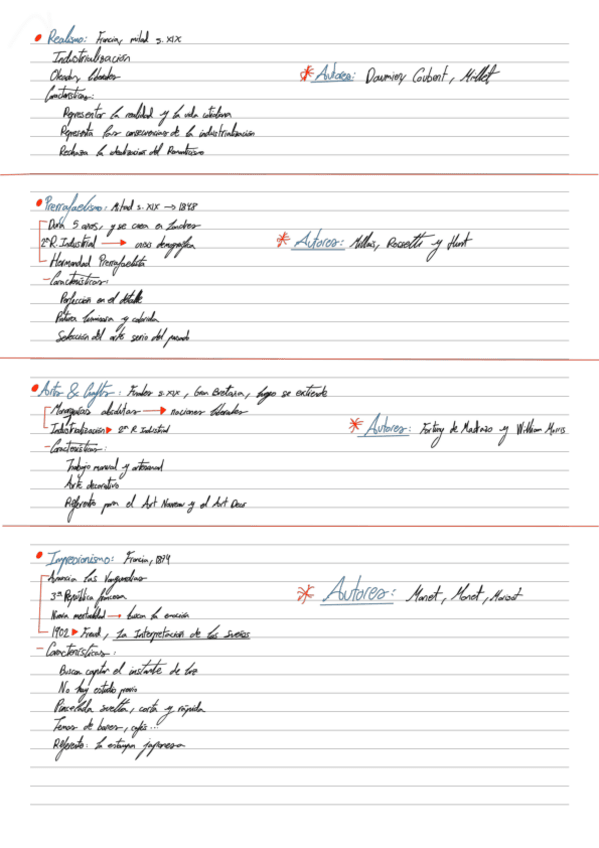 Realismo: Francia, mitad s. XIX
Industrialización
Oleadas liberales
Autores: Daumier, Coubert, Millet
Características:
Representar la realidad y la vida cotidiana
Representa las consecuencias de la industrialización
Rechaza la idealización del Romanticismo
Prerrafaelismo: Mitad s. XIX → 1848
Dura 5 años, y se crea en Londres
2ª R. Industrial → crisis demográfica
Autores: Millais, Rossetti y Hunt
Hermandad Prerrafaelista
- Características:
Perfección en el detalle
Pintura luminosa y colorida
Selección del arte serio del pasado
Arts & Crafts: Finales s. XIX, Gran Bretaña, luego se extiende
Monarquías absolutas → naciones liberales
Industrialización → 2ª R. Industrial
Autores: Fortuny de Madrazo y William Morris
- Características:
Trabajo manual y artesanal
Arte decorativo
Referentes para el Art Nouveau y el Art Deco
Impresionismo: Francia, 1874
Anuncia las Vanguardias
3ª República francesa
Autores: Manet, Monet,
Nueva mentalidad → buscan la emoción
1902 → Freud, La Interpretación de los sueños
- Características:
Buscan captar el instante de luz
No hay estudio previo
Pincelada suelta, corta y rápida
Temas de bares, cafés...
Referente: la estampa japonesa